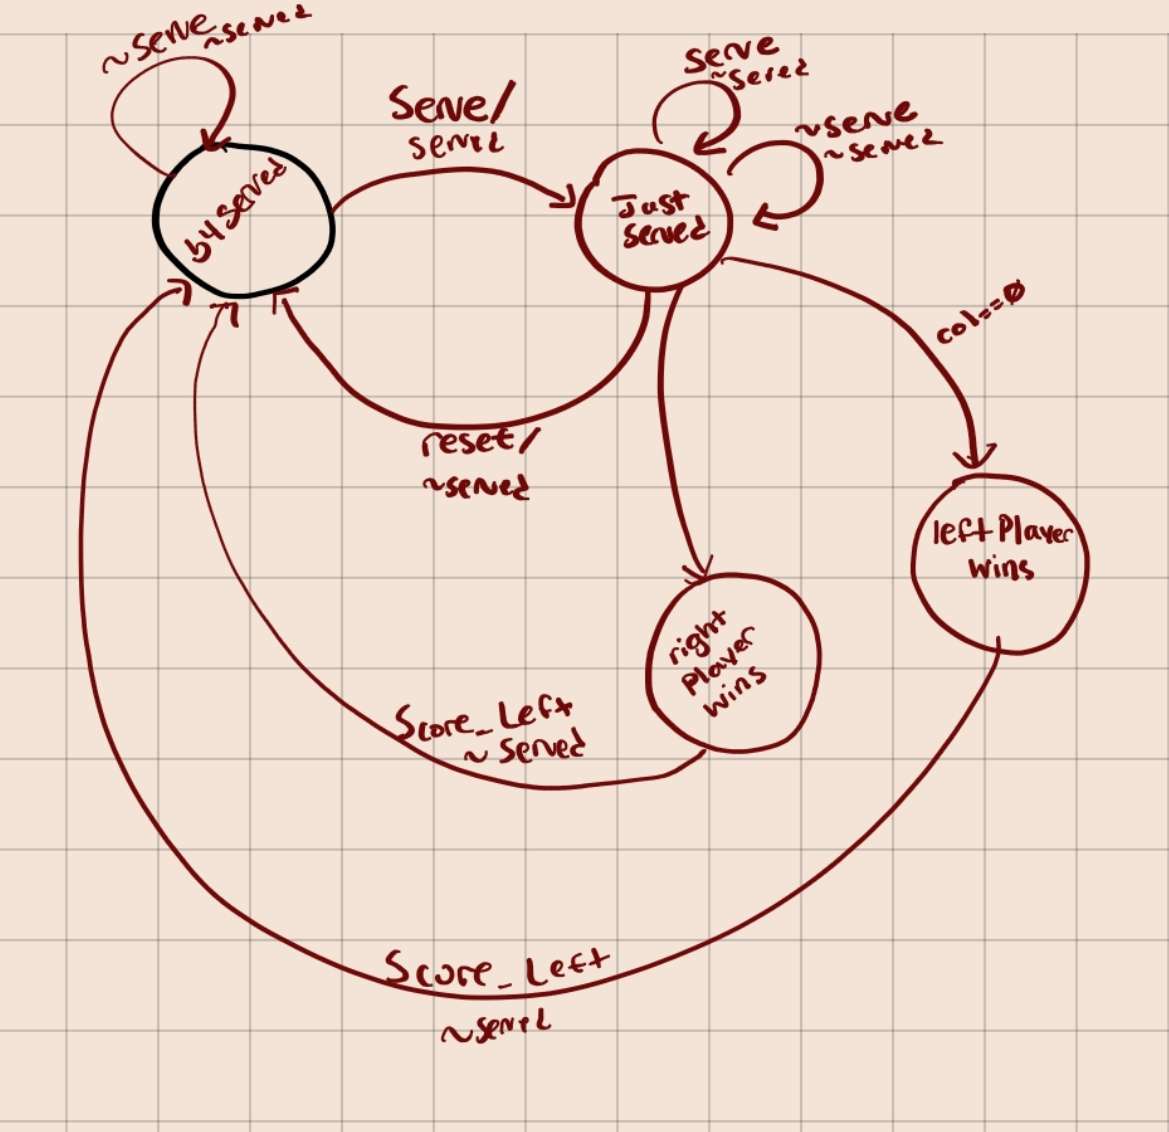 ~serve
~served
Serve/
served
serve
~sered
~serve
~served
b4 served
Just
served
col==0
reset/
~served
left Player
wins
right
Player
wins
Score_Left
~ Served
Score_Left
~served